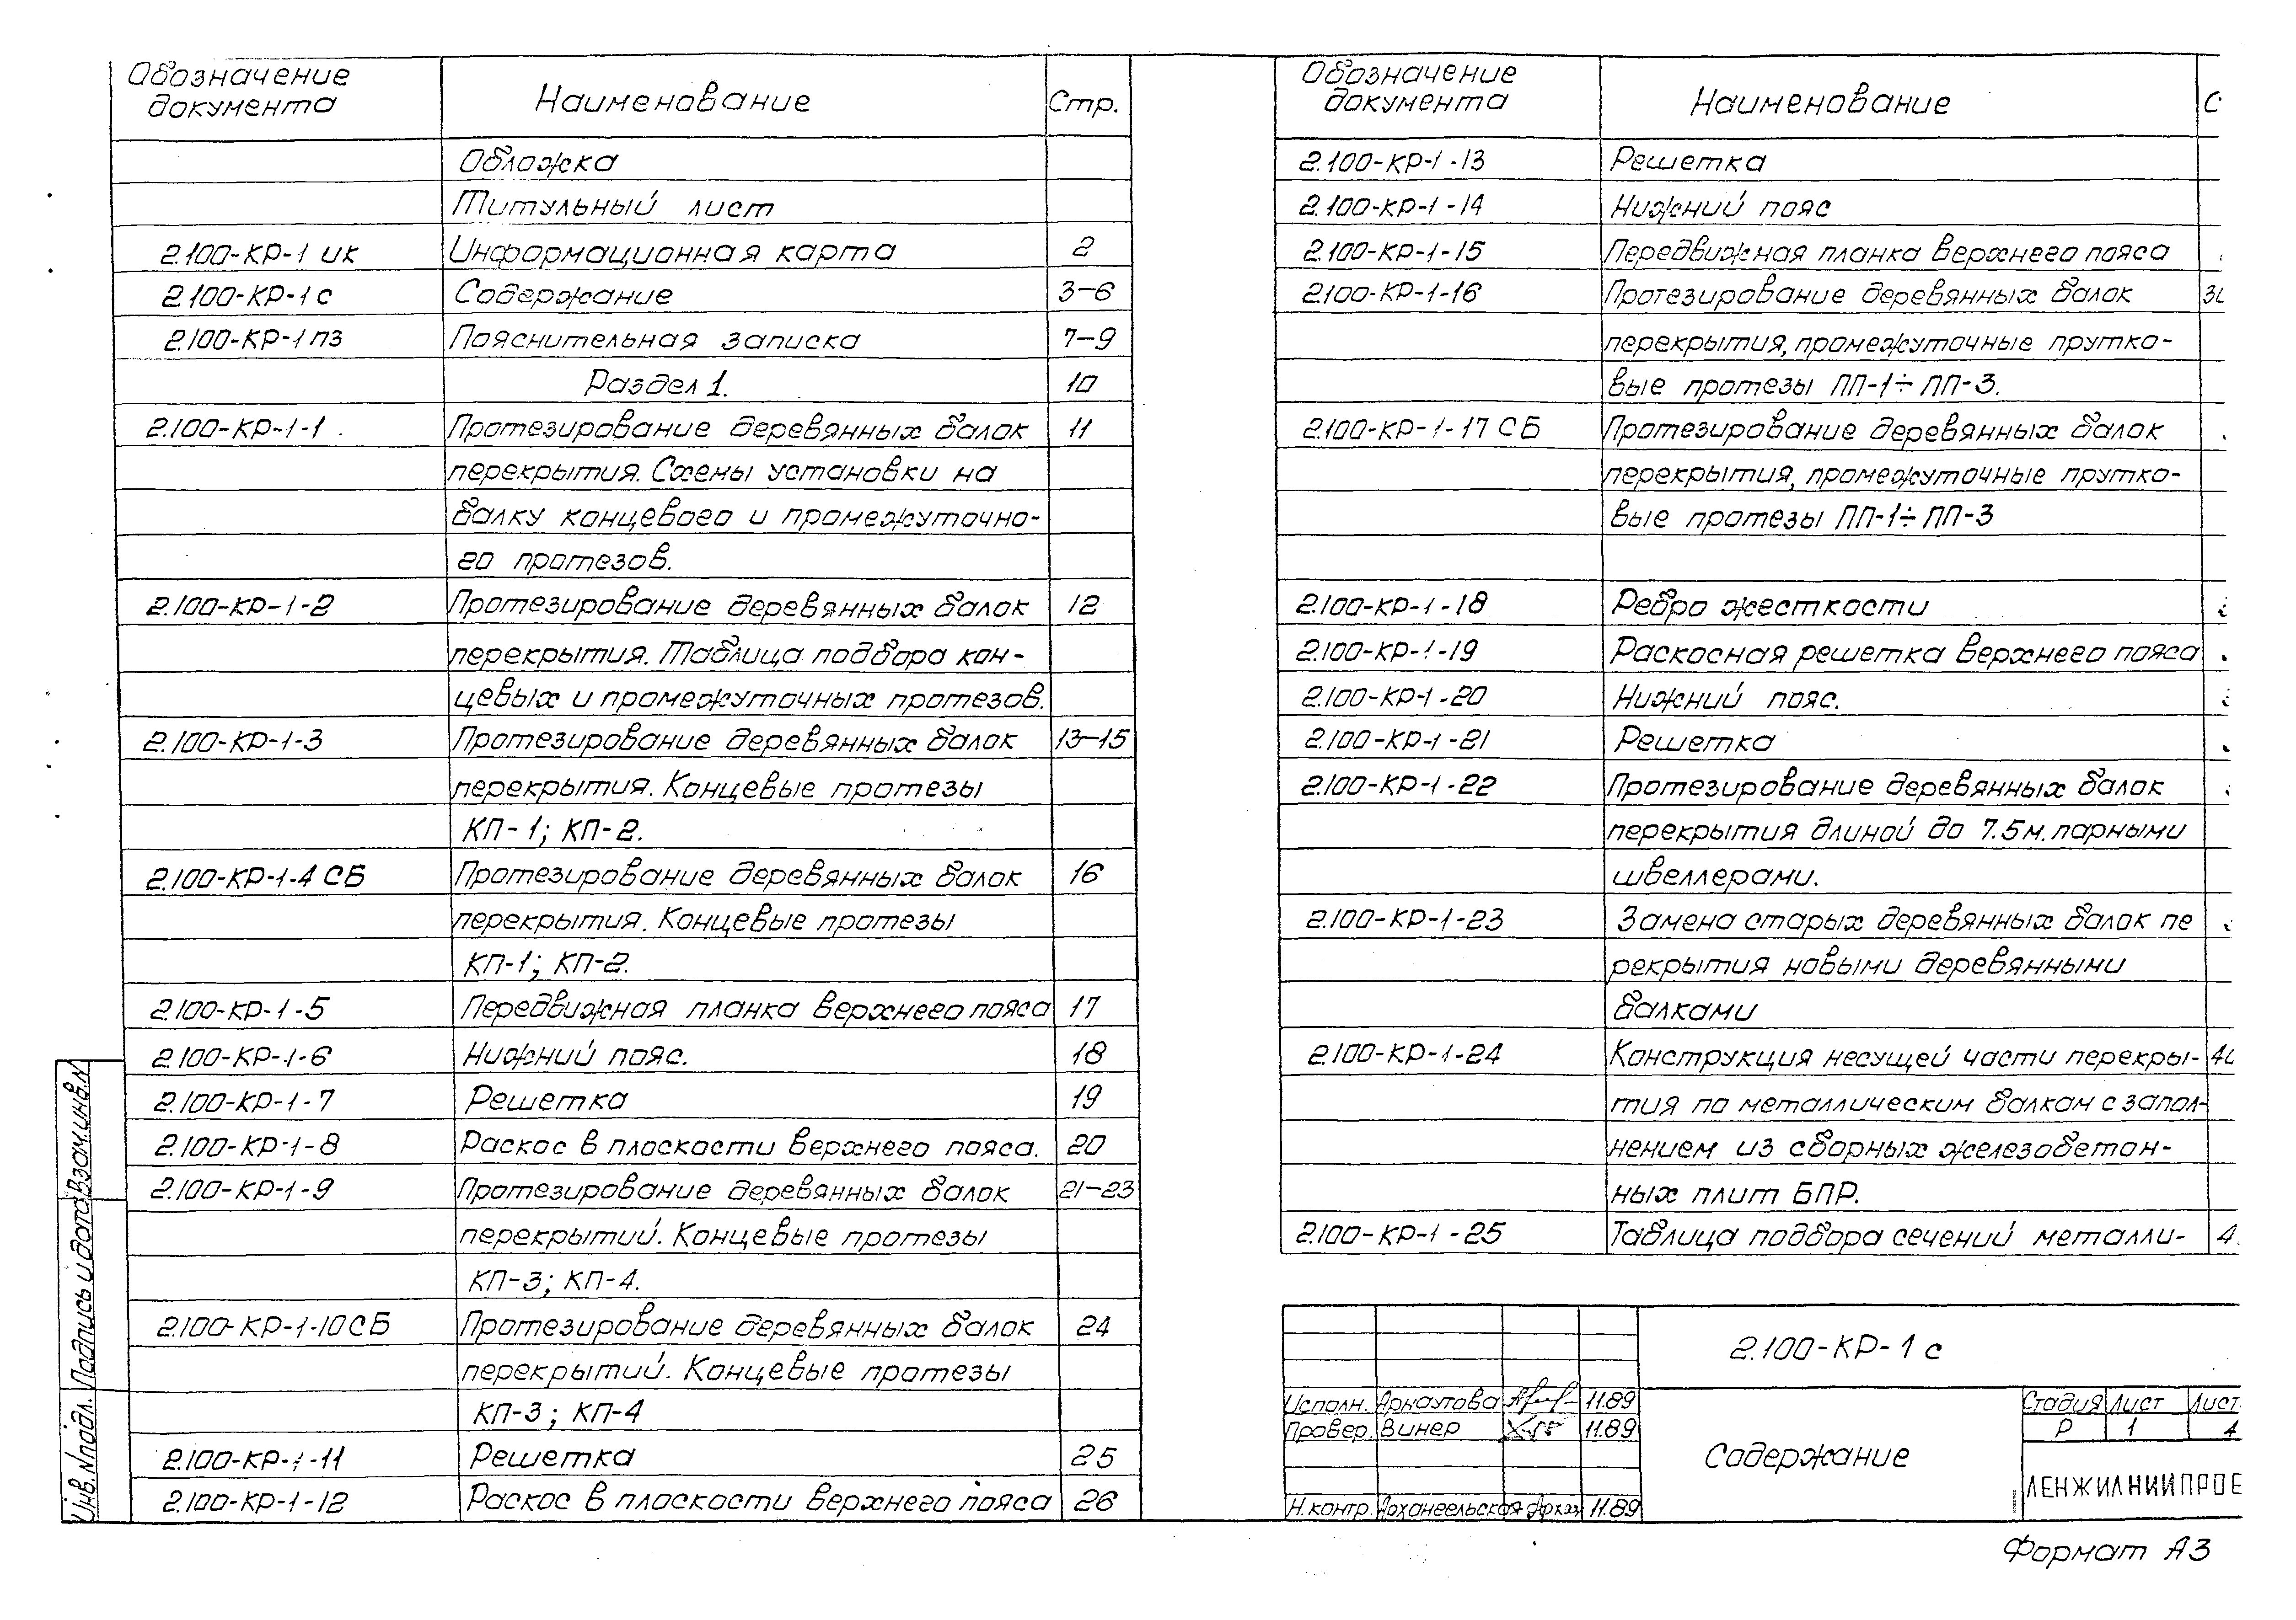 Обозначение документа Наименование Стр.
Обложка
Титульный лист
2.100-КР-1 ИК Информационная карта 2
2.100-КР-1 С Содержание 3-6
2.100-КР-1 ПЗ Пояснительная записка 7-9
Раздел 1. 10
2.100-КР-1-1 Протезирование деревянных балок 11
перекрытия. Схемы установки на
балку концевого и промежуточно-
го протезов.
2.100-КР-1-2 Протезирование деревянных балок 12
перекрытия. Таблица подбора кон-
цевых и промежуточных протезов.
2.100-КР-1-3 Протезирование деревянных балок 13-15
перекрытия. Концевые протезы
КП-1; КП-2.
2.100-КР-1-4 СБ Протезирование деревянных балок 16
перекрытия. Концевые протезы
КП-1; КП-2.
2.100-КР-1-5 Передвижная планка верхнего пояса 17
2.100-КР-1-6 Нижний пояс. 18
2.100-КР-1-7 Решетка 19
2.100-КР-1-8 Раскос в плоскости верхнего пояса. 20
2.100-КР-1-9 Протезирование деревянных балок 21-23
перекрытий. Концевые протезы
КП-3; КП-4.
2.100-КР-1-10 СБ Протезирование деревянных балок 24
перекрытий. Концевые протезы
КП-3; КП-4
2.100-КР-1-11 Решетка 25
2.100-КР-1-12 Раскос в плоскости верхнего пояса 26
Взам.инв.N
Подпись и дата
Инв. N подл.
Обозначение документа Наименование С
2.100-КР-1-13 Решетка
2.100-КР-1-14 Нижний пояс
2.100-КР-1-15 Передвижная планка верхнего пояса
2.100-КР-1-16 Протезирование деревянных балок
перекрытия, промежуточные прутко-
вые протезы ПП-1÷ПП-3.
2.100-КР-1-17 СБ Протезирование деревянных балок
перекрытия, промежуточные прутко-
вые протезы ПП-1÷ПП-3
2.100-КР-1-18 Ребро жесткости
2.100-КР-1-19 Раскосная решетка верхнего пояса
2.100-КР-1-20 Нижний пояс.
2.100-КР-1-21 Решетка
2.100-КР-1-22 Протезирование деревянных балок
перекрытия длиной до 7.5м. парными
швеллерами.
2.100-КР-1-23 Замена старых деревянных балок пе
рекрытия новыми деревянными
балками
2.100-КР-1-24 Конструкция несущей части перекры-
тия по металлическим балкам с запол-
нением из сборных железобетон-
ных плит БПР.
2.100-КР-1-25 Таблица подбора сечений металли- 4
2.100-КР-1 С
Исполн. Арнаутова 11.89
Провер. Винер 11.89
Н.контр. Архангельская 11.89
Содержание
Стадия Лист Лист
Р 1 4
ЛЕНЖИЛНИИПРОЕ
Формат А3